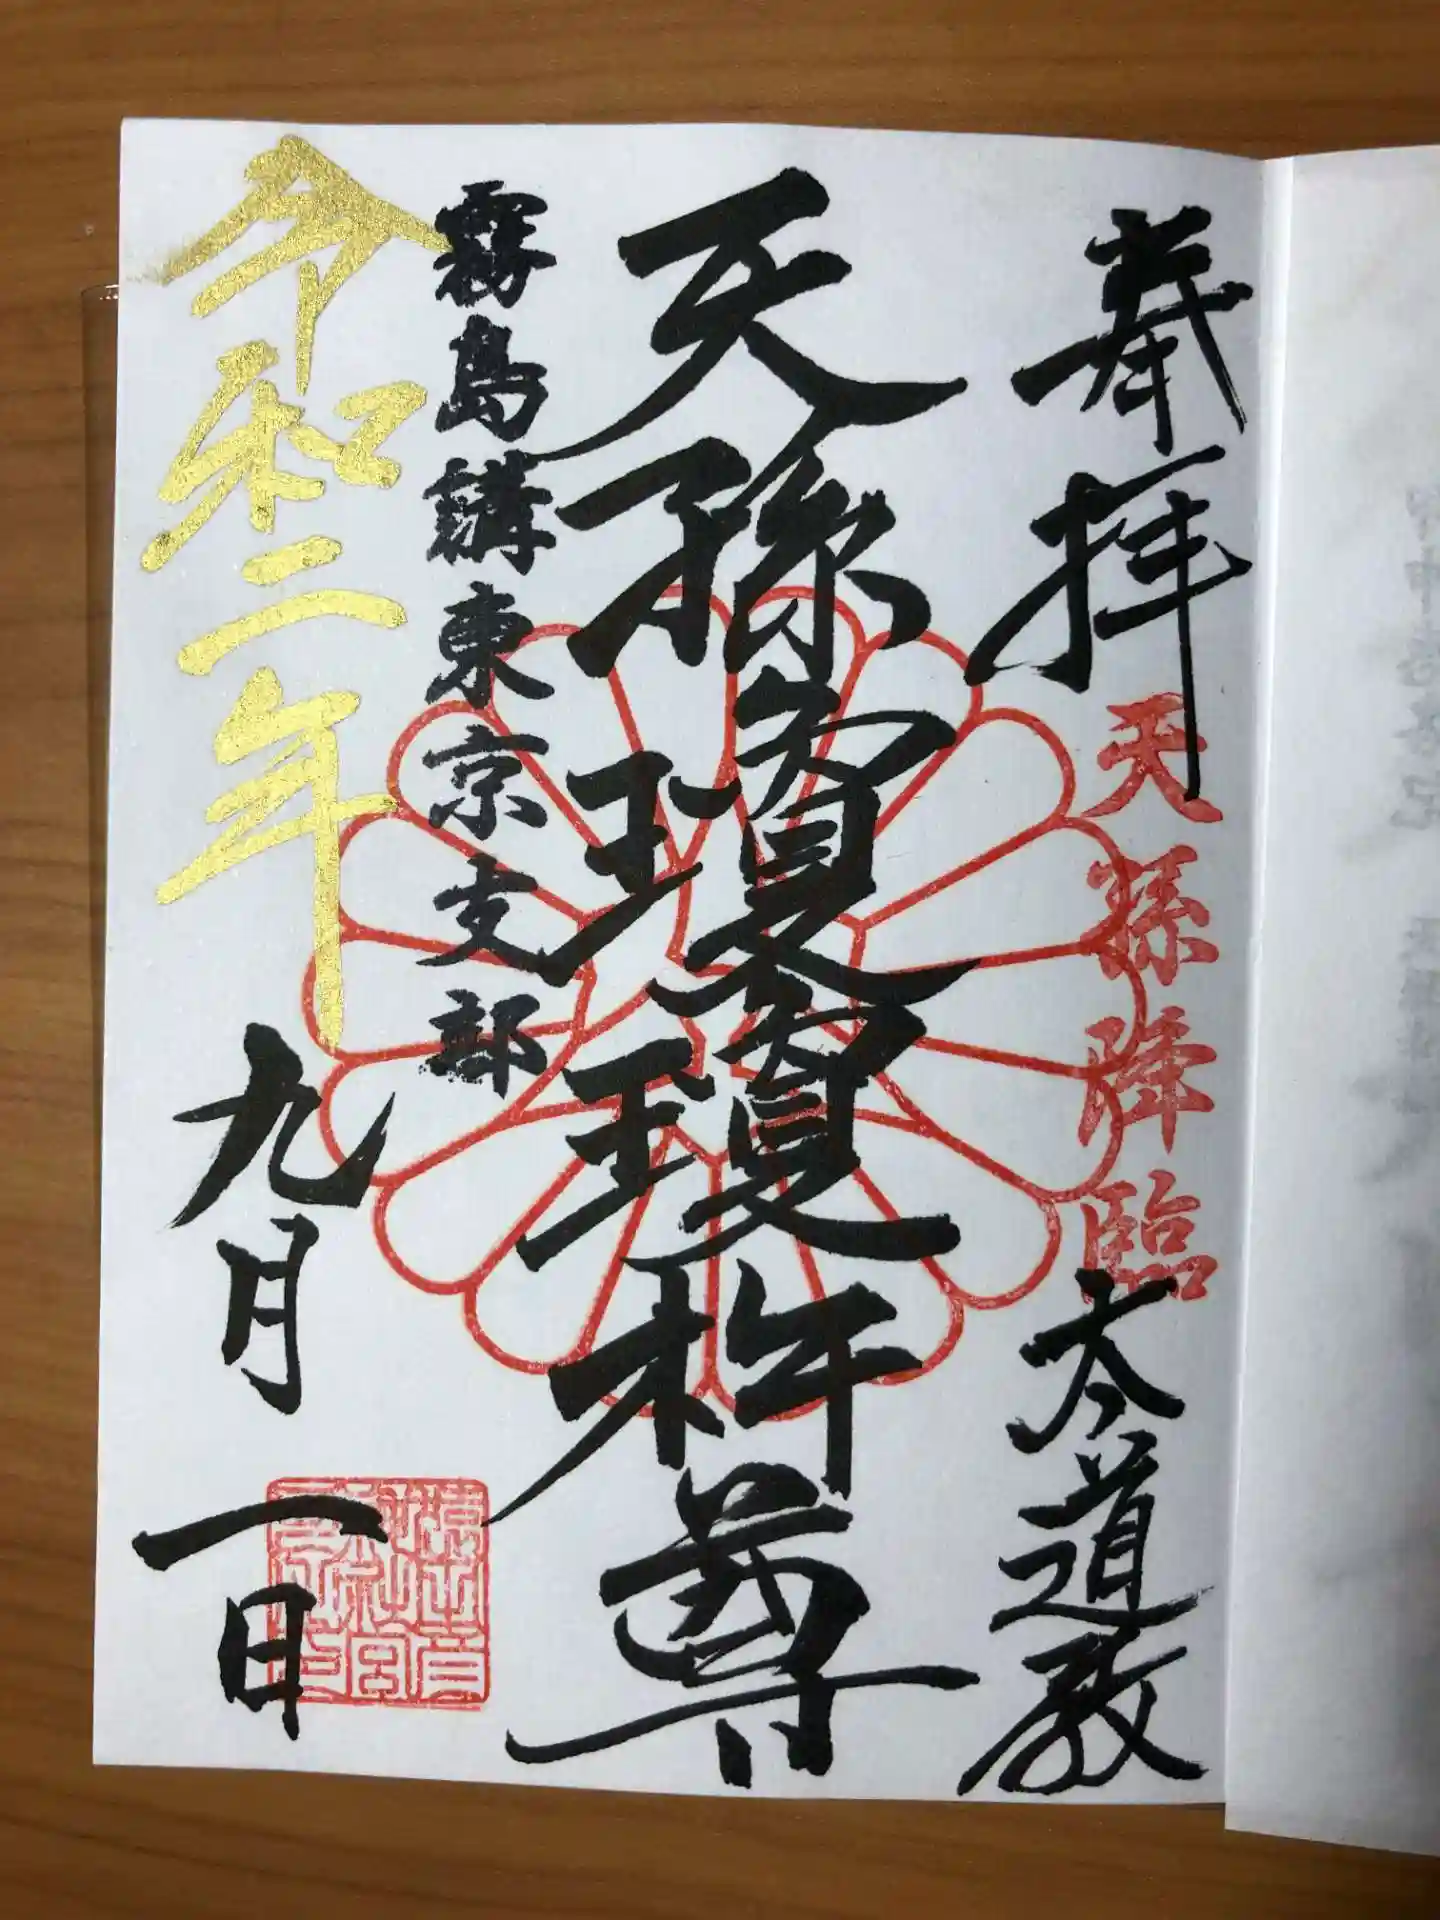 奉拝
天孫降臨
太道教
天孫瓊瓊杵尊
霧島講東京支部
令和二年
九月一日